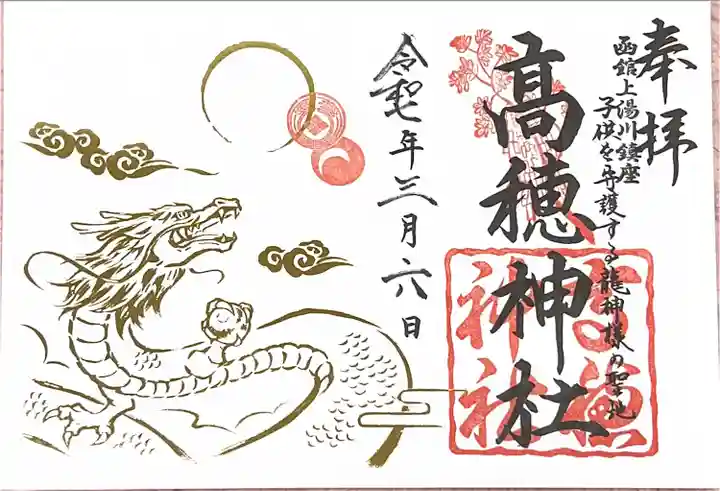 奉拝
函館上湯川鎮座
子供を守護する龍神様の聖地
髙穂神社
高穂
神社
令和七年三月六日